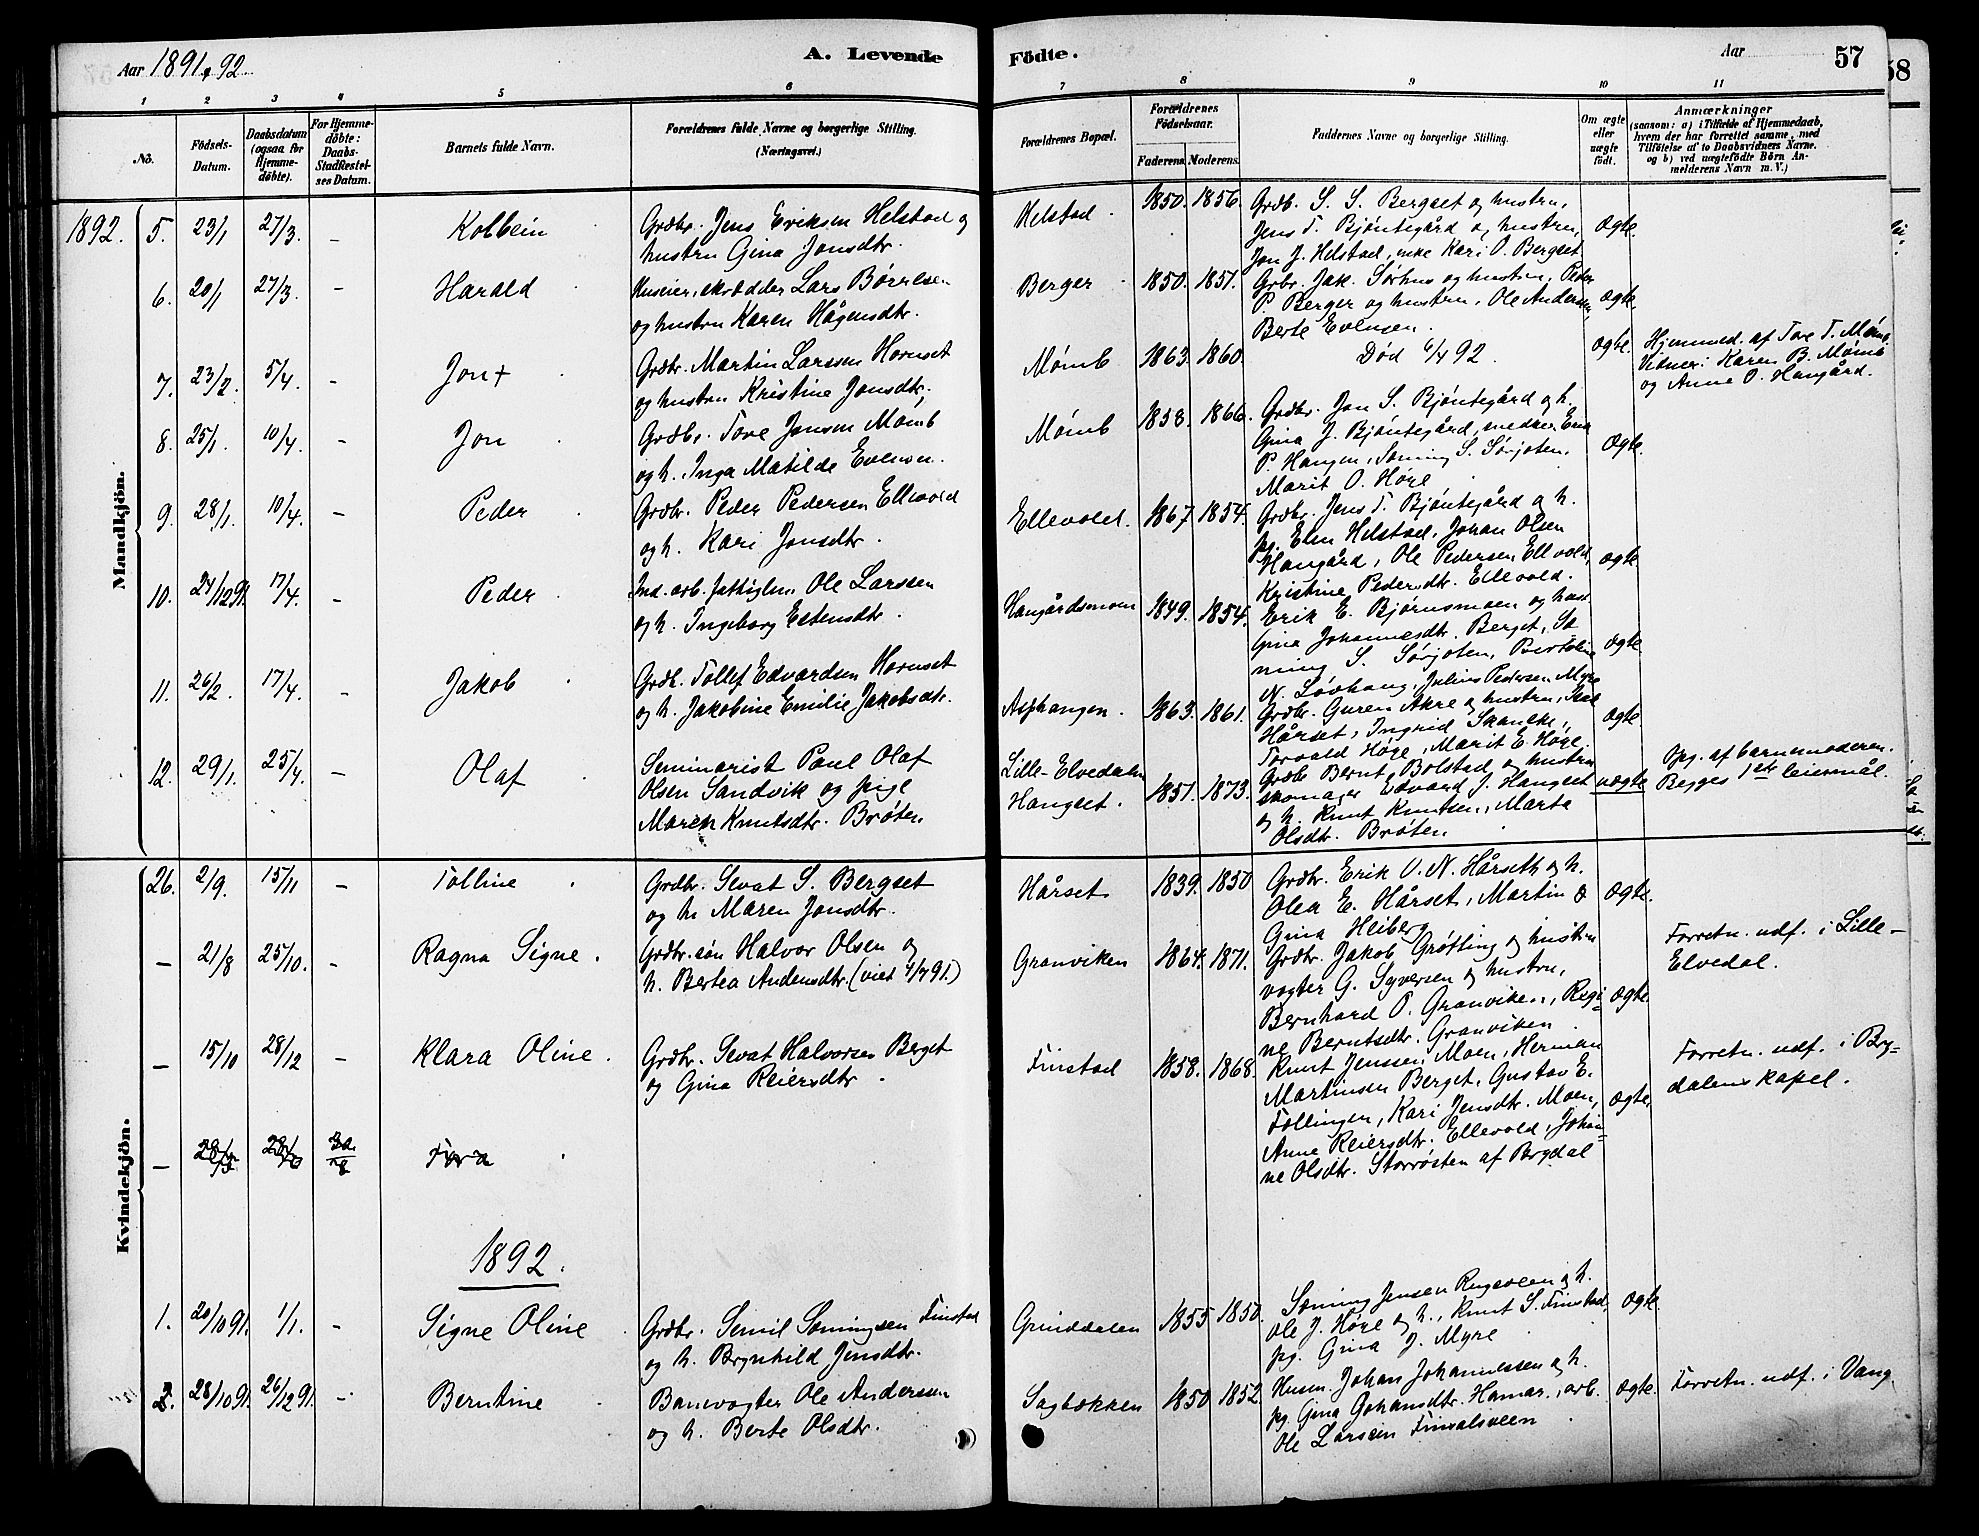 Aar 1891 & 92
A. Levende
Födte.
Aar
57
58
1
2
3
4
5
6
7
8
9
10
11
No.
Födsels-
Datum.
Daabsdatum
(ogsaa for
Hjemme-
döbte).
For Hjemme-
döbte:
Daabs-
Stadfæstel-
ses Datum.
Barnets fulde Navn.
Forældrenes fulde Navne og borgerlige Stilling.
(Næringsvei.)
Forældrenes Bopæl.
Forældrenes
Födselsaar.
Faderens.
Moderens.
Faddernes Navne og borgerlige Stilling.
Om ægte
eller
uægte
födt.
Anmærkninger
(saasom: a) i Tilfælde af Hjemmedaab,
hvem der har forrettet samme, med
Tilföielse af to Daabsvidners Navne.
og b) ved uægtefödte Börn An-
melderens Navn m. V.)
Mandkjön.
1892. 5. 23/1 27/3. – Kolbein
Grdbr. Jens Eriksen Helstad og
hustru Gina Jonsdtr.
Helstad. 1850. 1856.
Grdb. S. S. Bergset og hustru,
Jens T. Bjøntegård og hustru,
Jon J. Helstad, enke Kari O. Bergset
Ægte.
6. 20/1 27/3. – Harald
Huseier, skrædder Lars Børresen
og hustru Karen Hågensdtr.
Berger 1850. 1851.
Grbr. Jak. Sørhus og hustru, Peder
P. Berger og hustru, Ole Andersen,
Berte Evensen.
Ægte.
7. 23/2. 5/4. – Jon +
Grdbr. Martin Larssen Hornset
og hustru Kristine Jonsdtr.
Mømb 1863. 1860.
Død 6/4 92.
Ægte.
Hjemmed. af Tore T. Mømb
Vidner: Karen B. Mømb
og Anne O. Haugård.
8. 25/1. 10/4. – Jon
Grdbr. Tore Jonsen Mømb
og h. Inga Matilde Evensen.
Mømb 1858. 1866.
Grdbr. Jon S. Bjøntegård og h.
Gina J. Bjøntegård, snedker Erik
P. Haugen, Søming S. Sørjoten,
Marit O. Høye
Ægte.
9. 28/1. 10/4. – Peder
Grdbr. Peder Pedersen Ellevold
og h. Kari Jonsdtr.
Ellevold. 1867. 1854.
Grdbr. Jens T. Bjøntegård og h.
pg. Elen Helstad, Johan Olsen
Haugård, Ole Pedersen Ellevold,
Kristine Pedersdtr. Ellevold.
Ægte
10. 24/12 91. 17/4. – Peder
Ind. arb. fattiglem Ole Larssen
og h. Ingeborg Estensdtr.
Haugårdsmoen 1849. 1854.
Erik E. Bjørnsmoen og hust
Gina Johannesdtr. Berget, Sø
ming S. Sørjoten, Bertoline
N. Løvhaug, Julius Pedersen Myre
Ægte
11. 26/2. 17/4. – Jakob
Grdb. Tollef Edvardsen Hornset
og h. Jakobine Emilie Jakobsdtr.
Asphaugen. 1863. 1861.
Grdbr. Guren Akre og hustru,
Hårset, Ingrid Skancke,
Torvald Høye, Marit E. Høye.
Ægte
12. 29/1. 25/4. – Olaf
Seminarist Paul Olaf
Olsen Sandvik og pige
Maren Knutsdtr. Brøten
Lille-Elvedalen
Haugset. 1851. 1873.
Grdb. Bernt Bolstad og hustru
skomager Edvard J. Haugset
og h. Knut Knutsen, Marta
Olsdtr. Brøten
uægte
Opg. af barnemoderen.
Begges 1ste leiermål.
Kvindekjön.
26. 2/9. 15/11 – Tolline
Grdbr. Sevat S. Bergset
og h Maren Jonsdtr.
Hårset 1839. 1850
Grdbr. Erik O. N. Hårseth og h.
Olea E. Hårset, Martin &
Gina Heiberg
Ægte.
– 21/8 25/10. – Ragna Signe.
Grdbr. søn Halvor Olsen og
h. Bertea Andersdtr. (viet 4/4 91.)
Granviken 1864. 1871.
Grdbr. Jakob Grøtting og hustru
vogter G. Syversen og hustru,
Bernhard P. Granviken, Regi-
ne Berntsdtr. Granviken
Ægte
Forretn. udf. i Lille-
Elvedal.
– 15/10 28/12 – Klara Oline.
Grdbr. Sevat Halvorsen Berget
og Gina Reiersdtr.
Finstad 1858. 1868.
Knut Jenssen Moen, Herman
Martinsen Berget, Gustav E.
Tollingen, Kari Jensdtr. Moen,
Anne Reiersdtr. Ellevold, Johan-
ne Olsdtr. Storrøsten af Brydal
Ægte.
Forretn. udf. i Bry-
dalens kapel.
– Tora
1892.
1. 20/10 91. 1/1. – Signe Oline
Grdbr. Semil Sømingsen Finstad
og h. Brynhild Jensdtr.
Grinddalen 1855 1850.
Søming Jensen Rugsveen og h.
Ole J. Høye og h., Knut S. Finstad,
pg. Gina J. Myre
Ægte.
2. 28/10 91. 26/12 91. – Berntine
Banevogter Ole Andersen
og h. Berte Olsdtr.
Sagbakken 1850 1852.
Husm. Johan Johannessen og h.
pg. Gina Johansdtr. Hamar, arb.
Ole Larssen Finsalsveen
Ægte.
Forretn. udf. i Vang